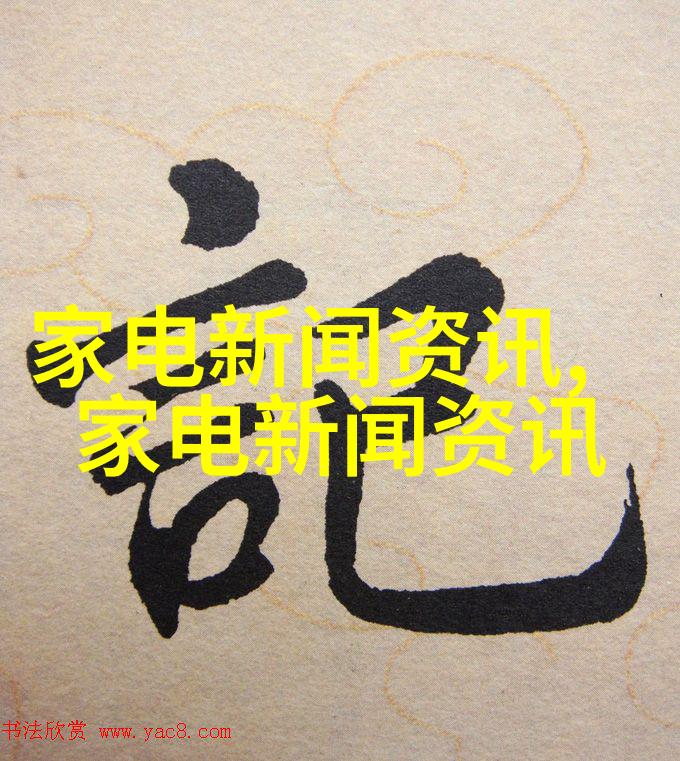 記
家电新闻资讯,
家电新闻资讯
书法欣赏 www.yac8.com